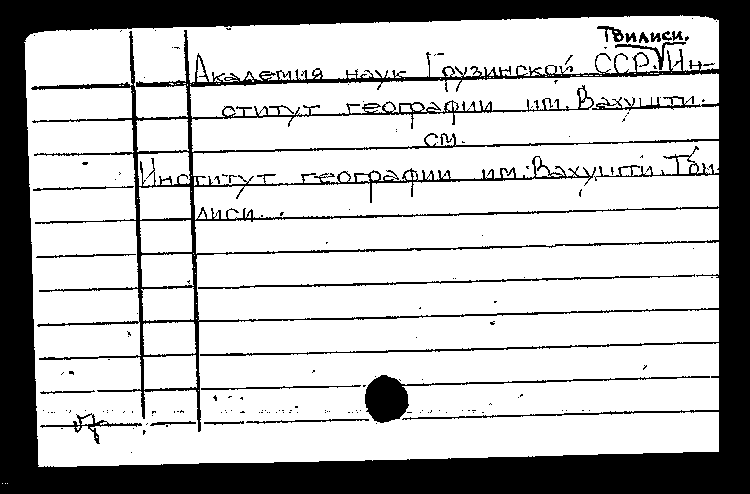 Тбилиси.
Академия наук Грузинской ССР. Ин-
ститут географии им. Вахушти.
см.
Институт географии им. Вахушти. Тби-
лиси.